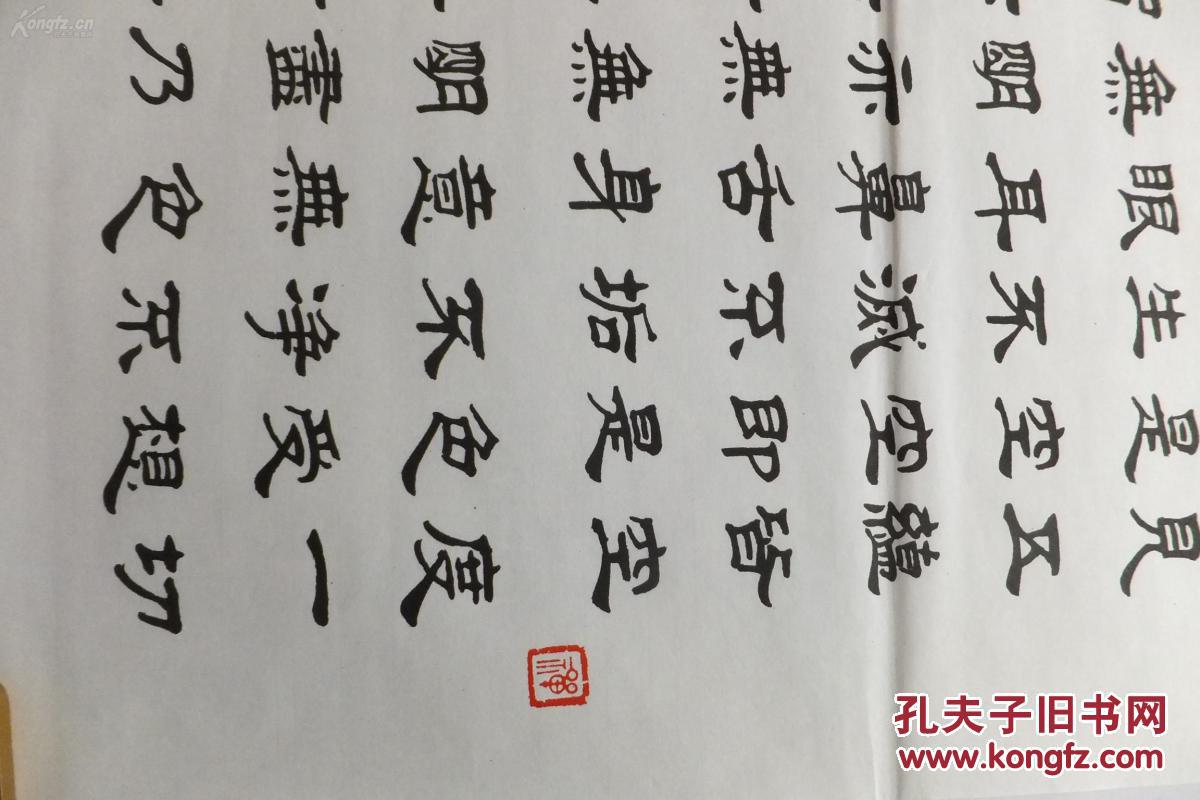 見五蘊皆空度一切
是空空即是色受想
生不滅不垢不淨不
眼耳鼻舌身意無色
無明亦無無明盡乃
Kongfz.cn
孔夫子旧书网
www.kongfz.com